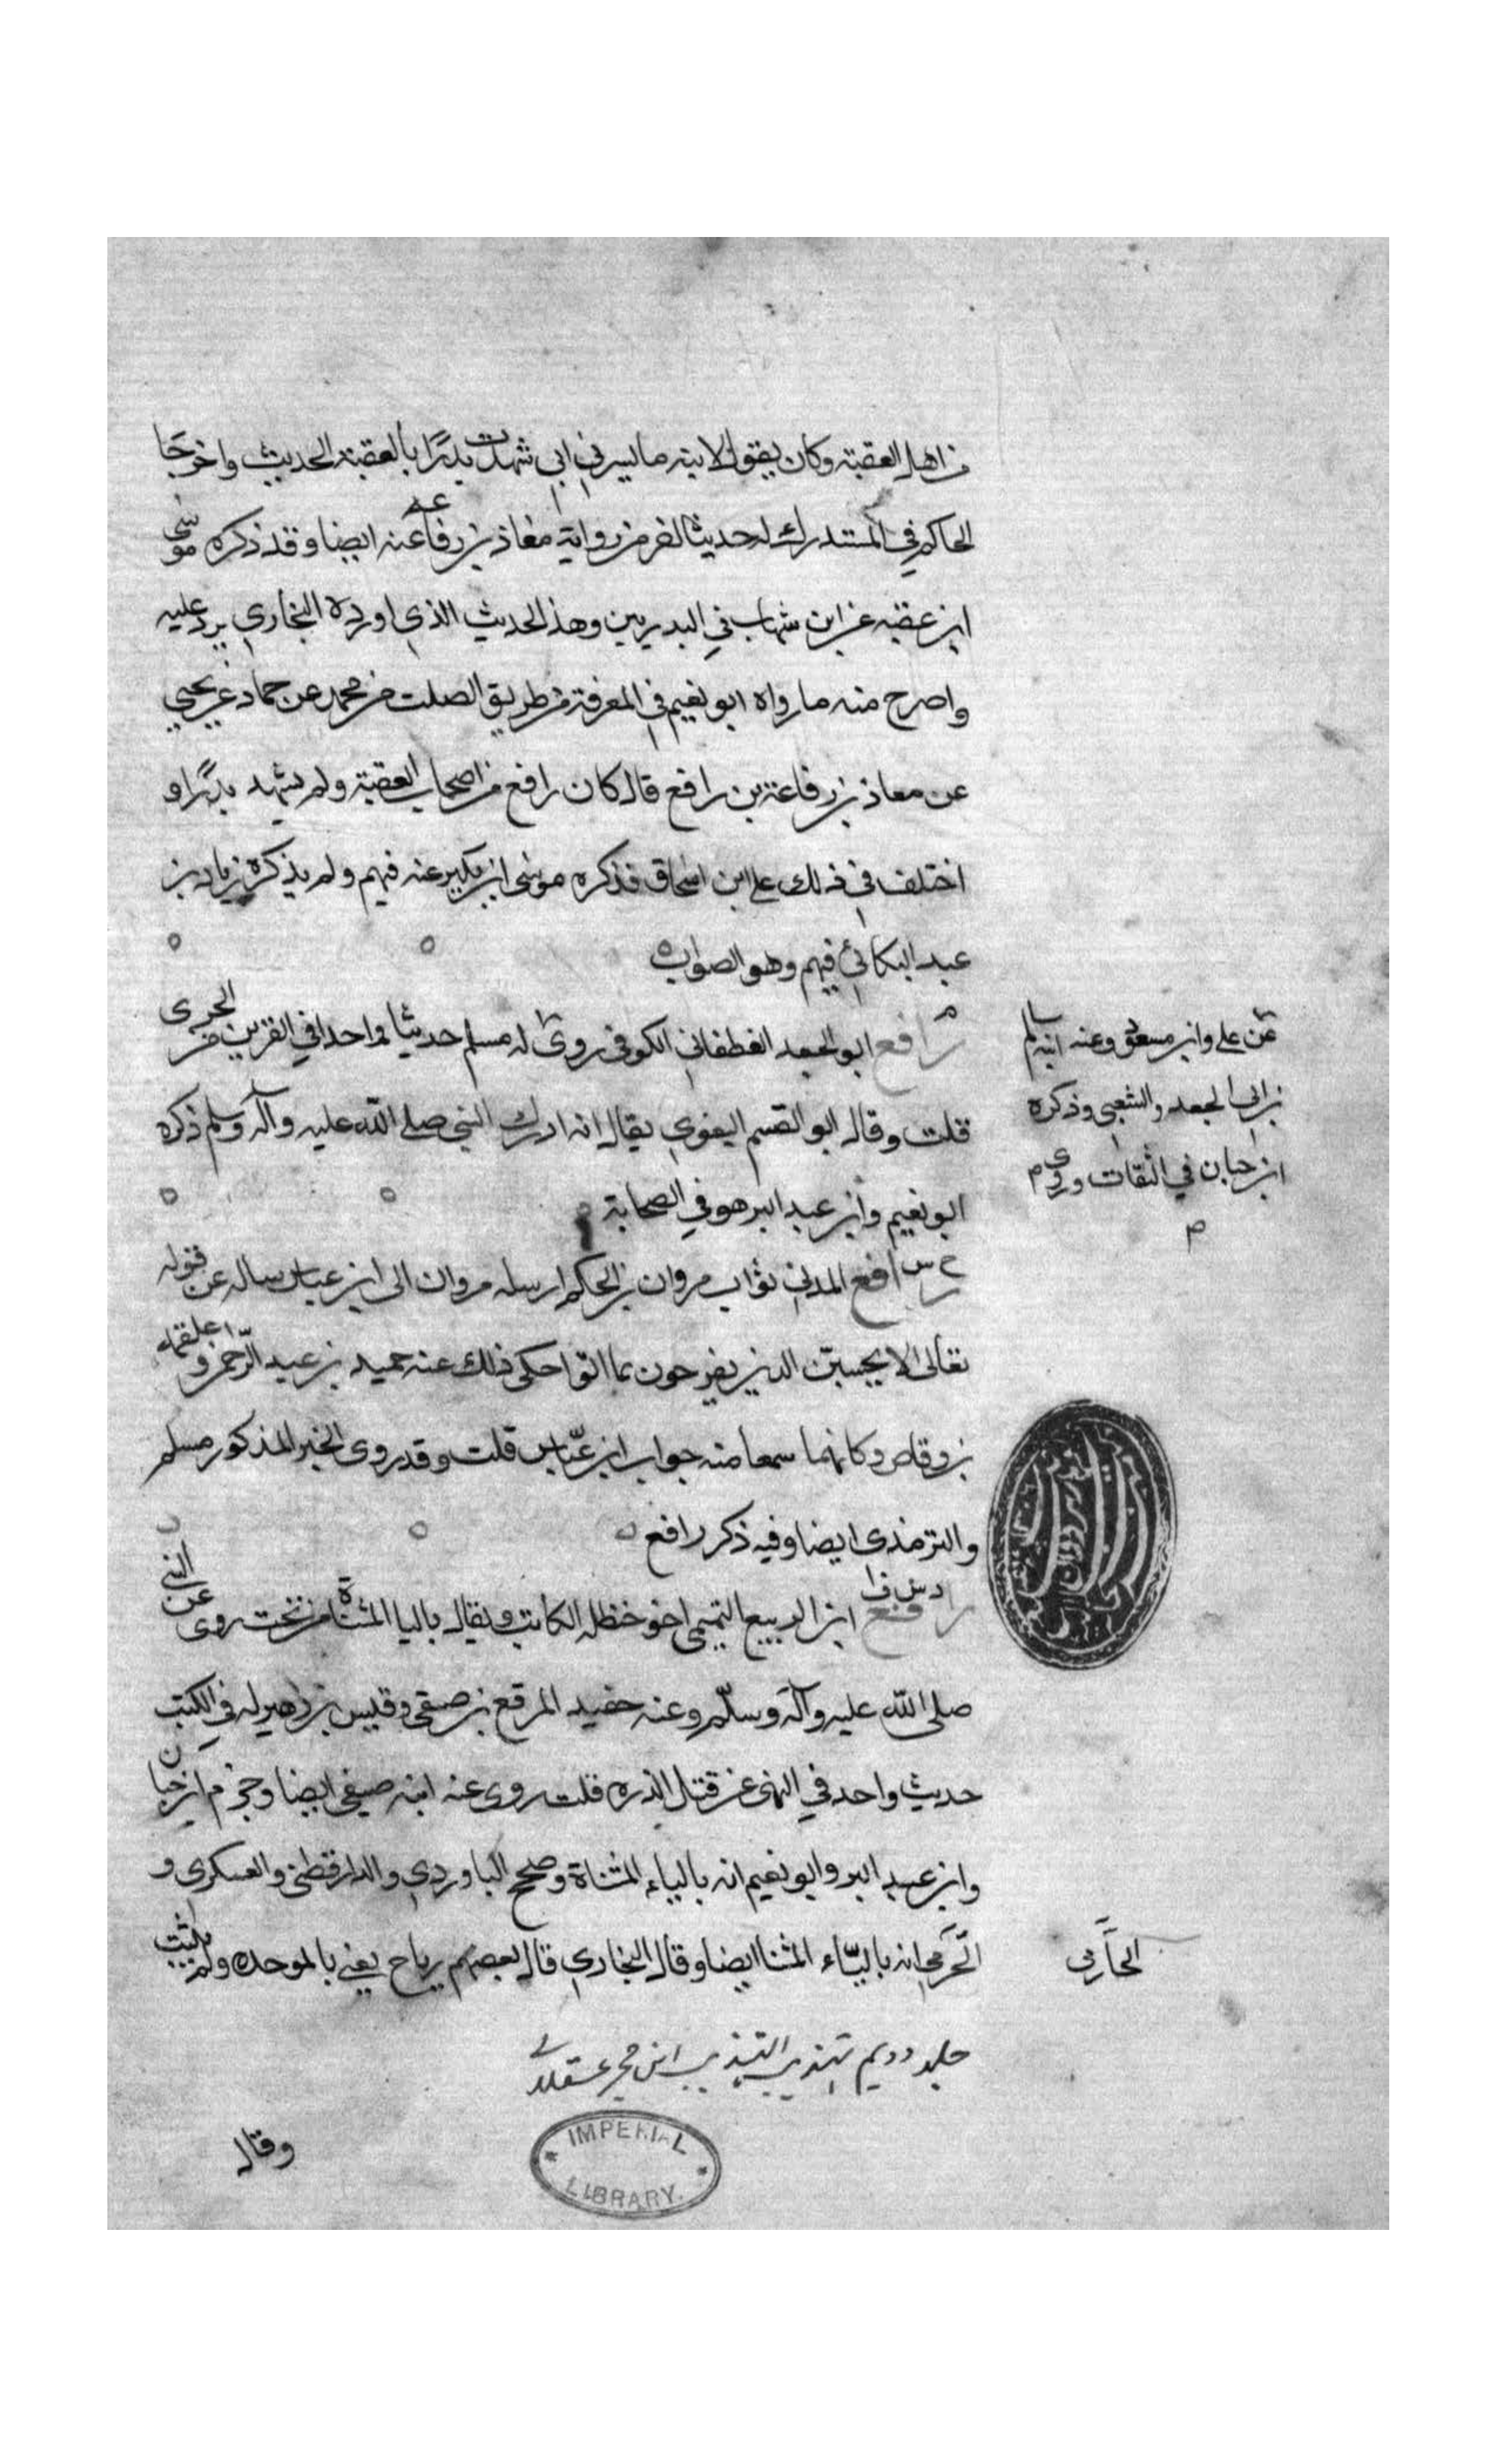 من اهل العقبة وكان يقول لابنه ما يسرني اني شهدت بدرًا بالعقبة الحديث واخرجا
الحاكم في المستدرك له حديثا اخر من رواية معاذ بن رفاعة عنه ايضا وقد ذكره موسى
ابن عقبه عن ابن شهاب في البدريين وهذا الحديث الذي اورده البخاري يرد عليه
واصرح منه ما رواه ابو نعيم في المعرفة من طريق الصلت من محمد عن حماد عن يحيي
عن معاذ بن رفاعة بن رافع قال كان رافع من اصحاب العقبة ولم يشهد بدرًا و
اختلف في ذلك على ابن اسحاق فذكره موسى ابن بكير عنه فيهم ولم يذكره زياد بن
عبد البكائي فيهم وهو الصواب
م رافع ابو الجعد الغطفاني الكوفي روى له مسلم حديثا واحدا في القرين من الجن
عن علي وابن مسعود وعنه ابنه سالم
بن ابي الجعد والشعبي وذكره
ابن حبان في الثقات وروى م
م
قلت وقال ابو القسم البغوي يقال انه ادرك النبي صلى الله عليه وآله وسلم ذكره
ابو نعيم وابن عبد البر هو في الصحابة
خ س رافع المدني بواب مروان بن الحكم ارسله مروان الى ابن عباس ساله عن قوله
تعالى لا يحسبن الذين يفرحون بما اتوا حكى ذلك عنه حميد بن عبد الرحمن و علقمة
بن وقاص وكانهما سمعا منه جواب ابن عبّاس قلت وقد روى الخبر المذكور مسلم
والترمذي ايضا وفيه ذكر رافع
د س ق رافع ابن الربيع التميمي اخو حنظله الكاتب ويقال باليا المثناة من تحت روى عن النبي
صلى الله عليه وآله وسلّم وعنه حفيده المرقع بن صيفي وقيس بن زهير له في الكتب
حديث واحد في النهي عن قتل الذره قلت روى عنه ابنه صيفي ايضا وجزم ابن حبان
وابن عبد البر وابو نعيم انه بالياء المثناة وصحح الباوردي والدارقطني والعسكري و
الحازمي
الحرمي انه باليّاء المثنا ايضا وقال البخاري قال بعضهم رباح يعني بالموحده ولم يثبت
جلد دويم تهذيب التهذيب ابن حجر عسقلانى
وقال
IMPERIAL
LIBRARY.